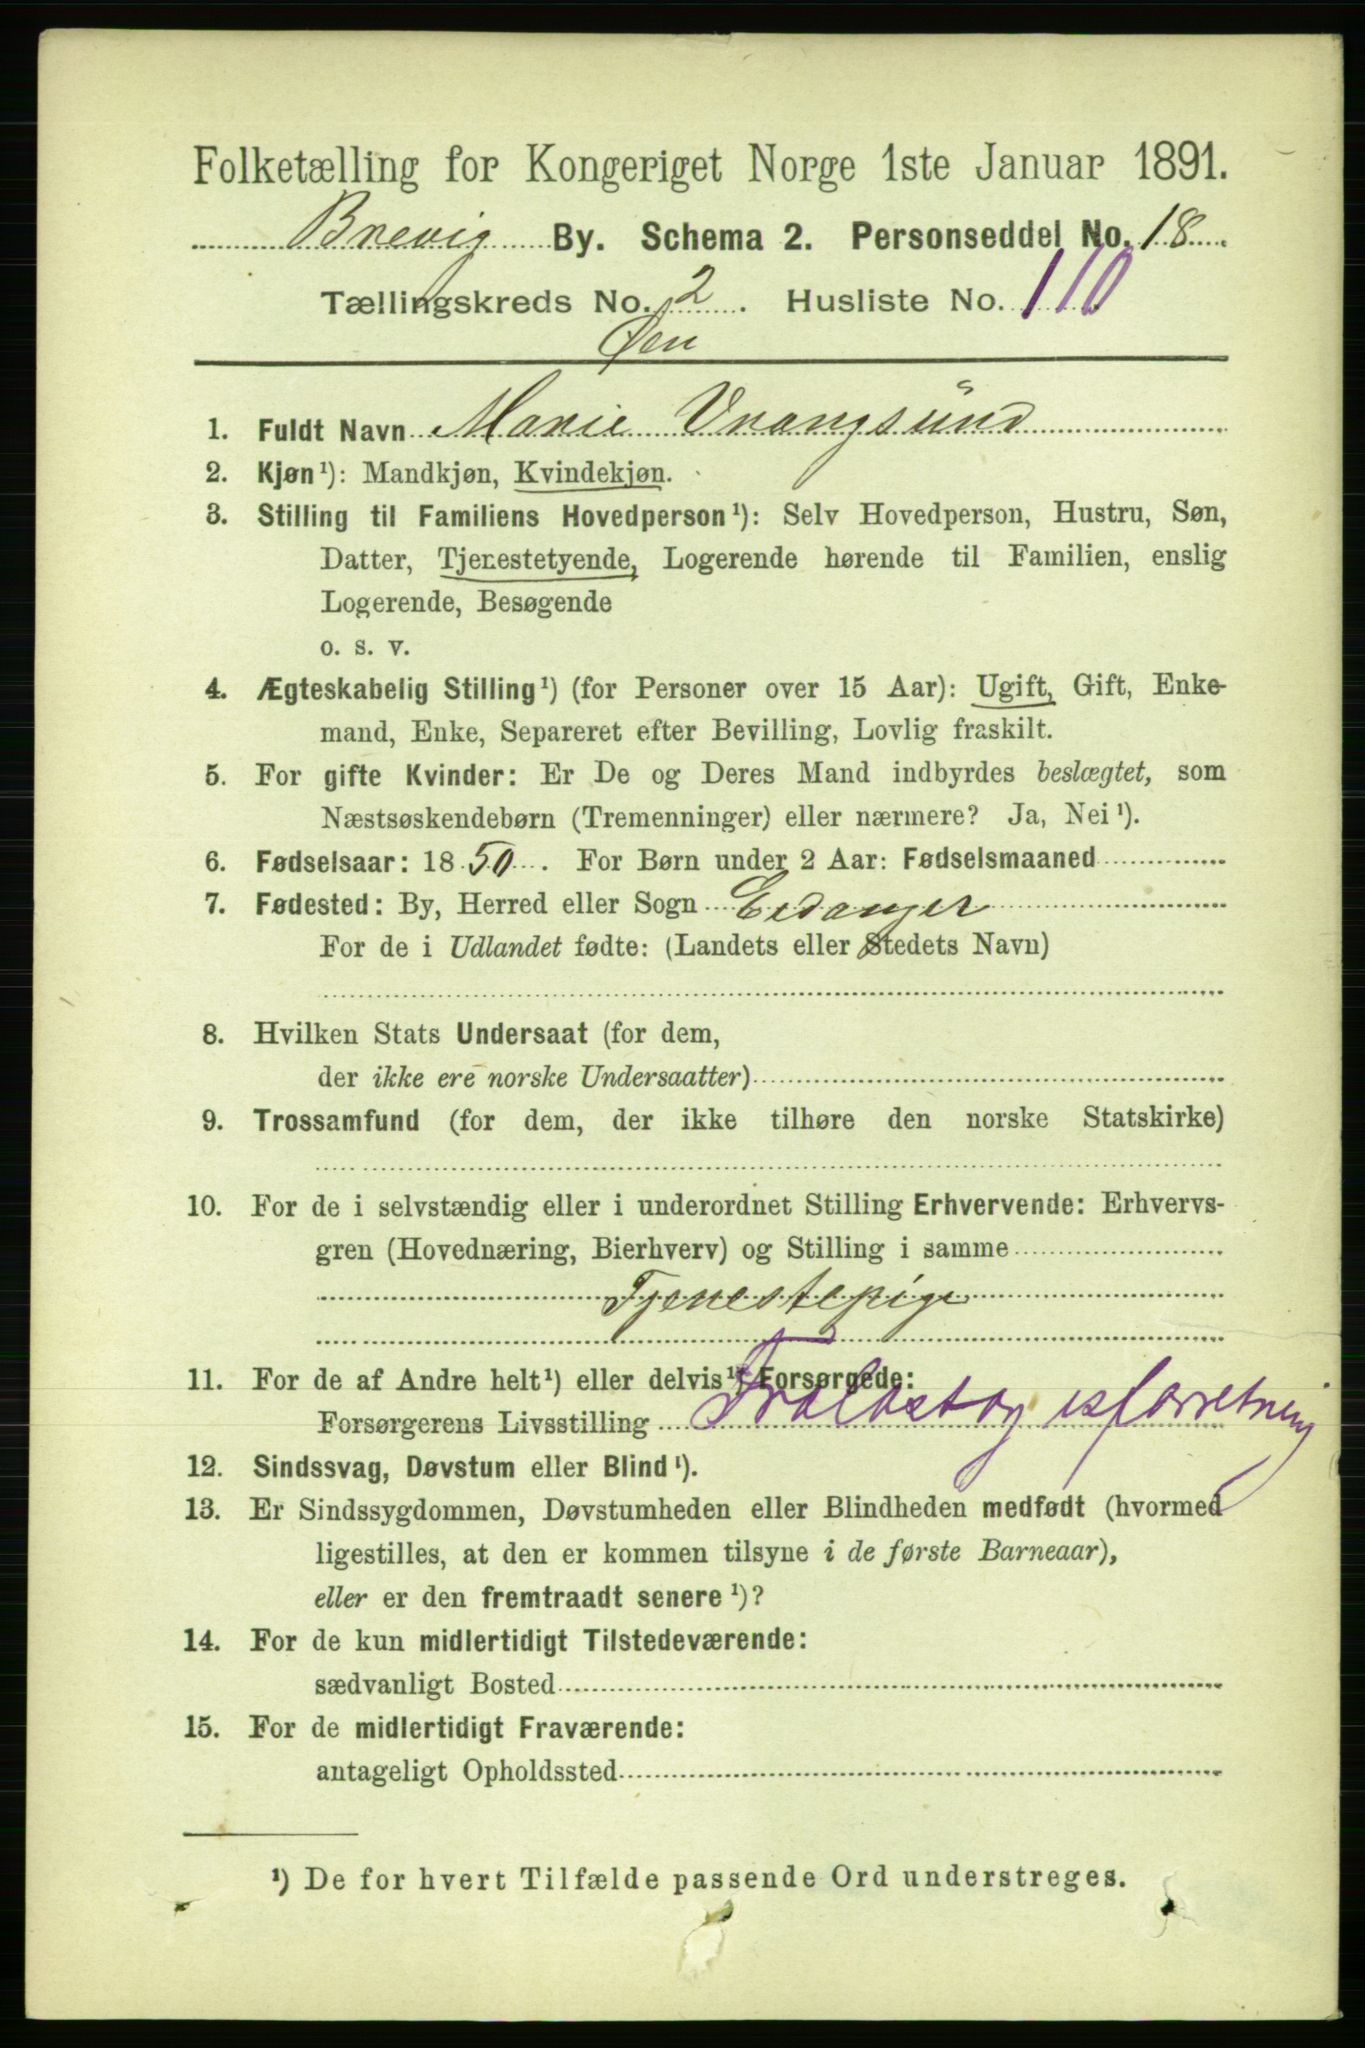 Folketælling for Kongeriget Norge 1ste Januar 1891.
Brevig By. Schema 2. Personseddel No. 18
Tællingskreds No. 2. Husliste No. 110
Øen
1. Fuldt Navn Marie Vrangsund
2. Kjøn¹): Mandkjøn, Kvindekjøn.
3. Stilling til Familiens Hovedperson¹): Selv Hovedperson, Hustru, Søn,
Datter, Tjenestetyende, Logerende hørende til Familien, enslig
Logerende, Besøgende
o. s. v.
4. Ægteskabelig Stilling¹) (for Personer over 15 Aar): Ugift, Gift, Enke-
mand, Enke, Separeret efter Bevilling, Lovlig fraskilt.
5. For gifte Kvinder: Er De og Deres Mand indbyrdes beslægtet, som
Næstsøskendebørn (Tremenninger) eller nærmere? Ja, Nei¹).
6. Fødselsaar: 1850. For Børn under 2 Aar: Fødselsmaaned
7. Fødested: By, Herred eller Sogn Eidanger
For de i Udlandet fødte: (Landets eller Stedets Navn)
8. Hvilken Stats Undersaat (for dem,
der ikke ere norske Undersaatter)
9. Trossamfund (for dem, der ikke tilhøre den norske Statskirke)
10. For de i selvstændig eller i underordnet Stilling Erhvervende: Erhvervs-
gren (Hovednæring, Bierhverv) og Stilling i samme
Tjenestepige
11. For de af Andre helt¹) eller delvis¹) Forsørgede:
Forsørgerens Livsstilling isforretning
12. Sindssvag, Døvstum eller Blind¹).
13. Er Sindssygdommen, Døvstumheden eller Blindheden medfødt (hvormed
ligestilles, at den er kommen tilsyne i de første Barneaar),
eller er den fremtraadt senere¹)?
14. For de kun midlertidigt Tilstedeværende:
sædvanligt Bosted
15. For de midlertidigt Fraværende:
antageligt Opholdssted
¹) De for hvert Tilfælde passende Ord understreges.